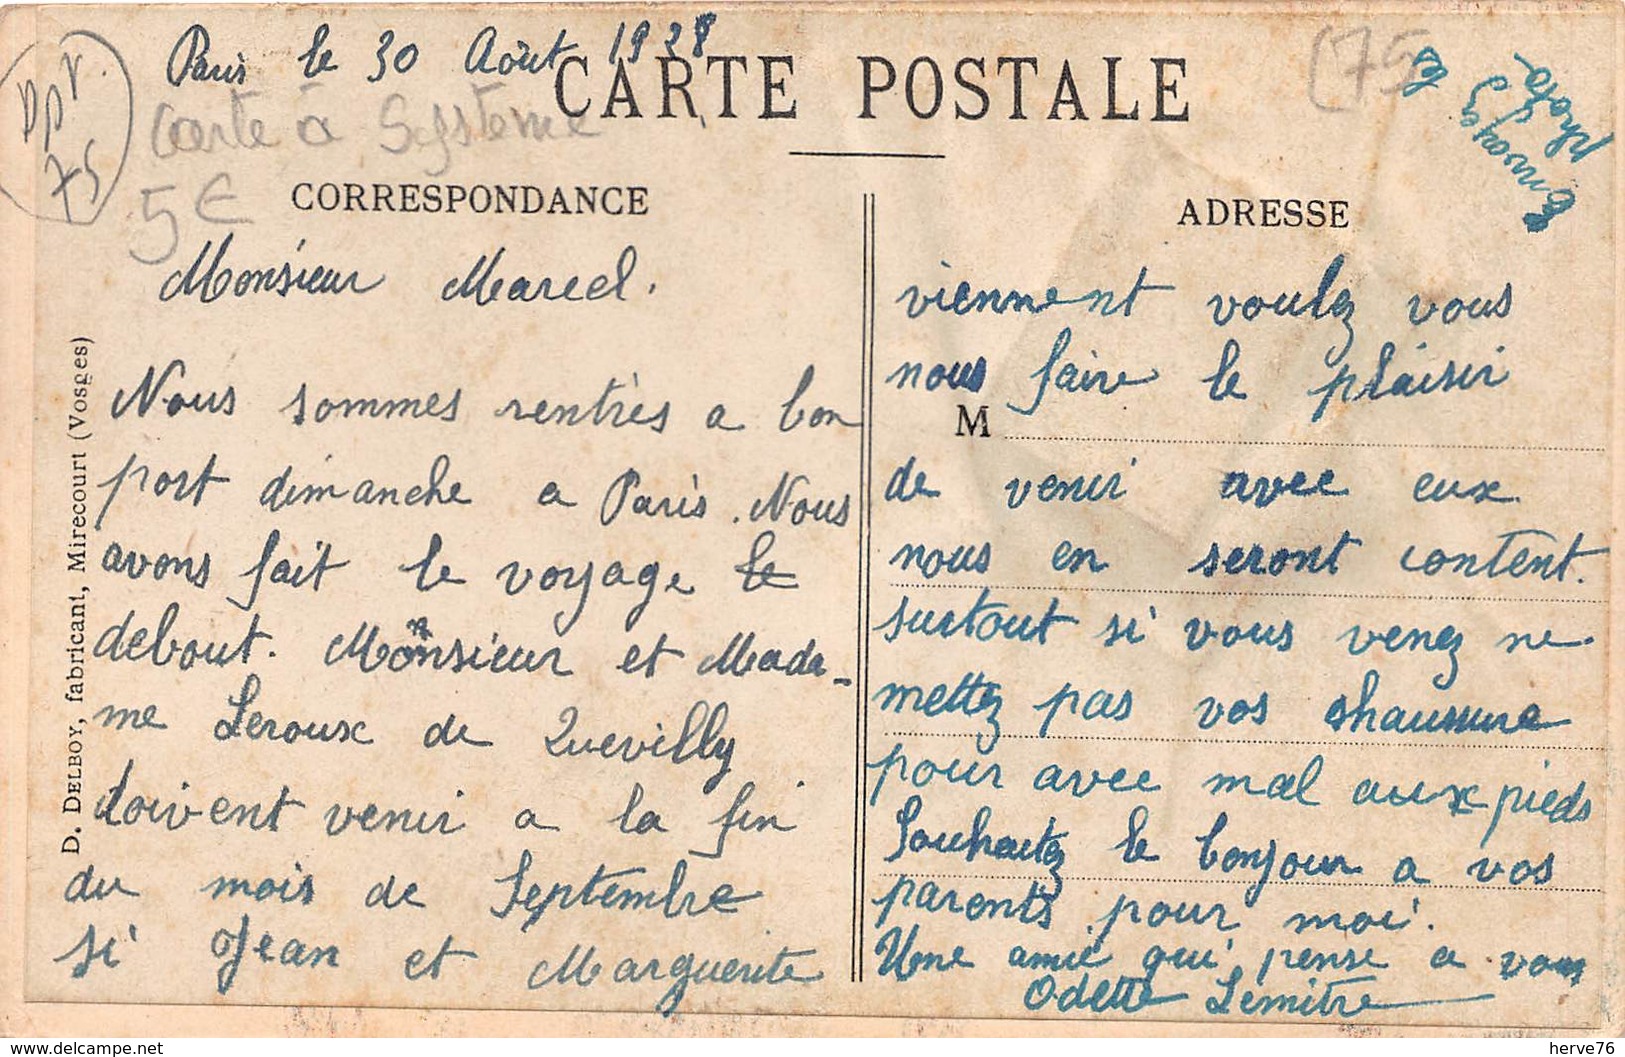 Paris le 30 Août 1928
CARTE POSTALE
Carte à Système
5€
75
(75
Envoyez les
photo-
CORRESPONDANCE
Monsieur Marcel.
Nous sommes rentrès a bon
port dimanche a Paris. Nous
avons fait le voyage le
debout. Monsieur et Mada-
me Leroux de Quevilly
doivent venir a la fin
du mois de Septembre
si Jean et Marguerite
ADRESSE
viennent voulez vous
nous faire le plaisir
M
de venir avec eux
nous en seront content.
surtout si vous venez ne
mettez pas vos chaussure
pour avec mal aux pieds
Souhaitez le bonjour a vos
parents pour moi.
Une amie qui pense a vous
Odette Lemitre
D. DELBOY, fabricant, Mirecourt (Vosges)
www.delcampe.net
herve76